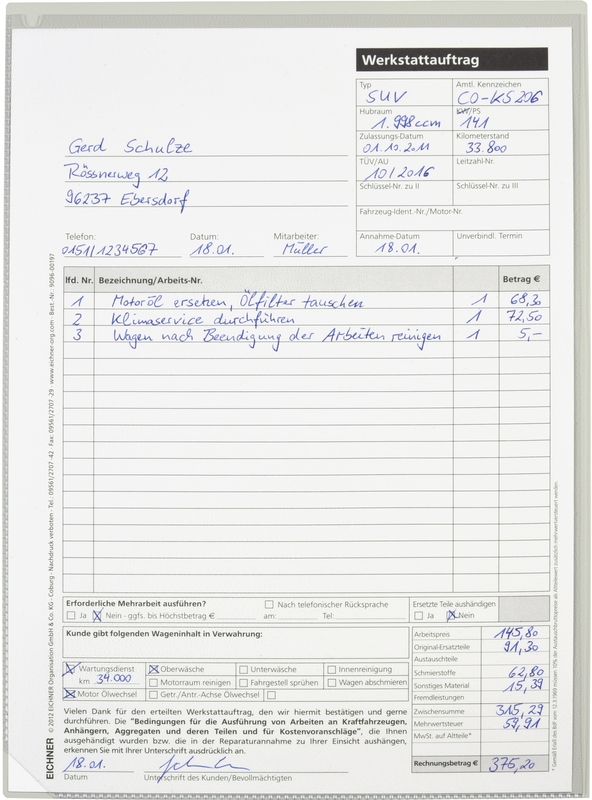 Werkstattauftrag
Typ
SUV
Amtl. Kennzeichen
CO-KS206
Hubraum
1.998ccm
KW/PS
141
Zulassungs-Datum
01.10.2011
Kilometerstand
33.800
TÜV/AU
10/2016
Leitzahl-Nr.
Schlüssel-Nr. zu II
Schlüssel-Nr. zu III
Fahrzeug-Ident.-Nr./Motor-Nr.
Annahme-Datum
18.01.
Unverbindl. Termin
Gerd Schulze
Rössnerweg 12
96237 Ebersdorf
Telefon:
0151/1234567
Datum:
18.01.
Mitarbeiter:
Müller
lfd. Nr. Bezeichnung/Arbeits-Nr. Betrag €
1 Motoröl ersetzen, Ölfilter tauschen 1 68,30
2 Klimaservice durchführen 1 72,50
3 Wagen nach Beendigung der Arbeiten reinigen 1 5,–
Erforderliche Mehrarbeit ausführen?
Nach telefonischer Rücksprache
Ja Nein - ggfs. bis Höchstbetrag € am: Tel:
Ersetzte Teile aushändigen
Ja Nein
Kunde gibt folgenden Wageninhalt in Verwahrung:
Wartungsdienst
km 34.000
Oberwäsche Unterwäsche Innenreinigung
Motorraum reinigen Fahrgestell sprühen Wagen abschmieren
Motor Ölwechsel Getr./Antr.-Achse Ölwechsel
Arbeitspreis 145,80
Original-Ersatzteile 91,30
Austauschteile
Schmierstoffe 62,80
Sonstiges Material 15,39
Fremdleistungen
Zwischensumme 315,29
Mehrwertsteuer 59,91
MwSt. auf Altteile*
Rechnungsbetrag € 375,20
Vielen Dank für den erteilten Werkstattauftrag, den wir hiermit bestätigen und gerne
durchführen. Die "Bedingungen für die Ausführung von Arbeiten an Kraftfahrzeugen,
Anhängern, Aggregaten und deren Teilen und für Kostenvoranschläge", die Ihnen
ausgehändigt wurden bzw. die in der Reparaturannahme zu Ihrer Einsicht aushängen,
erkennen Sie mit Ihrer Unterschrift ausdrücklich an.
18.01.
Datum
Unterschrift des Kunden/Bevollmächtigten
EICHNER © 2012 EICHNER Organisation GmbH & Co. KG · Coburg · Nachdruck verboten · Tel.: 09561/2707-42 · Fax: 09561/2707-29 · www.eichner-org.com · Best.-Nr.: 9096-00197